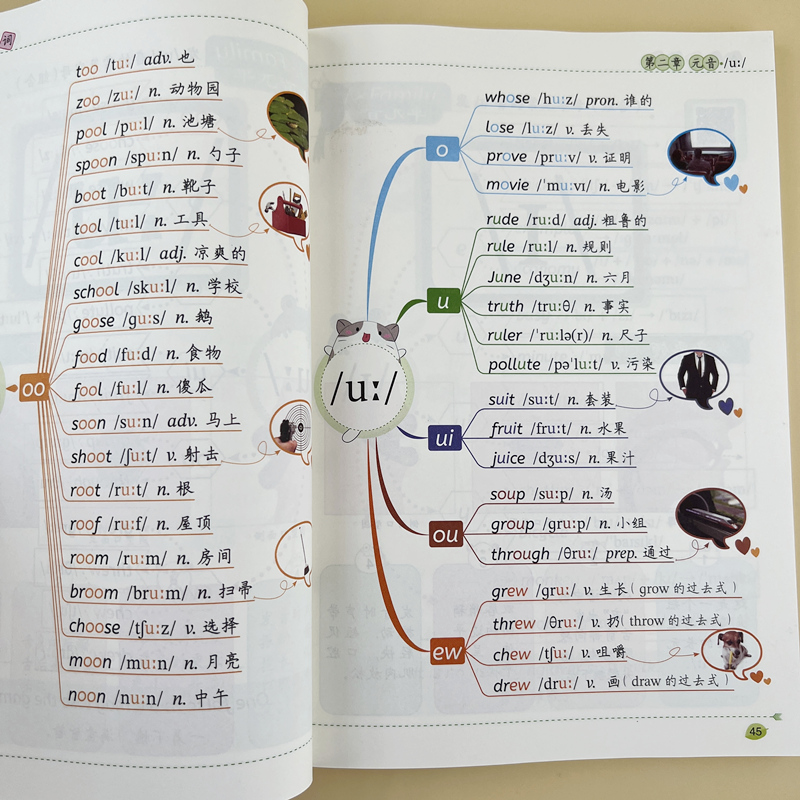 词
too /tuː/ adv. 也
zoo /zuː/ n. 动物园
pool /puːl/ n. 池塘
spoon /spuːn/ n. 勺子
boot /buːt/ n. 靴子
tool /tuːl/ n. 工具
cool /kuːl/ adj. 凉爽的
school /skuːl/ n. 学校
goose /guːs/ n. 鹅
food /fuːd/ n. 食物
fool /fuːl/ n. 傻瓜
soon /suːn/ adv. 马上
shoot /ʃuːt/ v. 射击
root /ruːt/ n. 根
roof /ruːf/ n. 屋顶
room /ruːm/ n. 房间
broom /bruːm/ n. 扫帚
choose /tʃuːz/ v. 选择
moon /muːn/ n. 月亮
noon /nuːn/ n. 中午
oo
第二章 元音·/uː/
/uː/
o
whose /huːz/ pron. 谁的
lose /luːz/ v. 丢失
prove /pruːv/ v. 证明
movie /ˈmuːvɪ/ n. 电影
u
rude /ruːd/ adj. 粗鲁的
rule /ruːl/ n. 规则
June /dʒuːn/ n. 六月
truth /truːθ/ n. 事实
ruler /ˈruːlə(r)/ n. 尺子
pollute /pəˈluːt/ v. 污染
ui
suit /suːt/ n. 套装
fruit /fruːt/ n. 水果
juice /dʒuːs/ n. 果汁
ou
soup /suːp/ n. 汤
group /gruːp/ n. 小组
through /θruː/ prep. 通过
ew
grew /gruː/ v. 生长（grow 的过去式）
threw /θruː/ v. 扔（throw 的过去式）
chew /tʃuː/ v. 咀嚼
drew /druː/ v. 画（draw 的过去式）
45